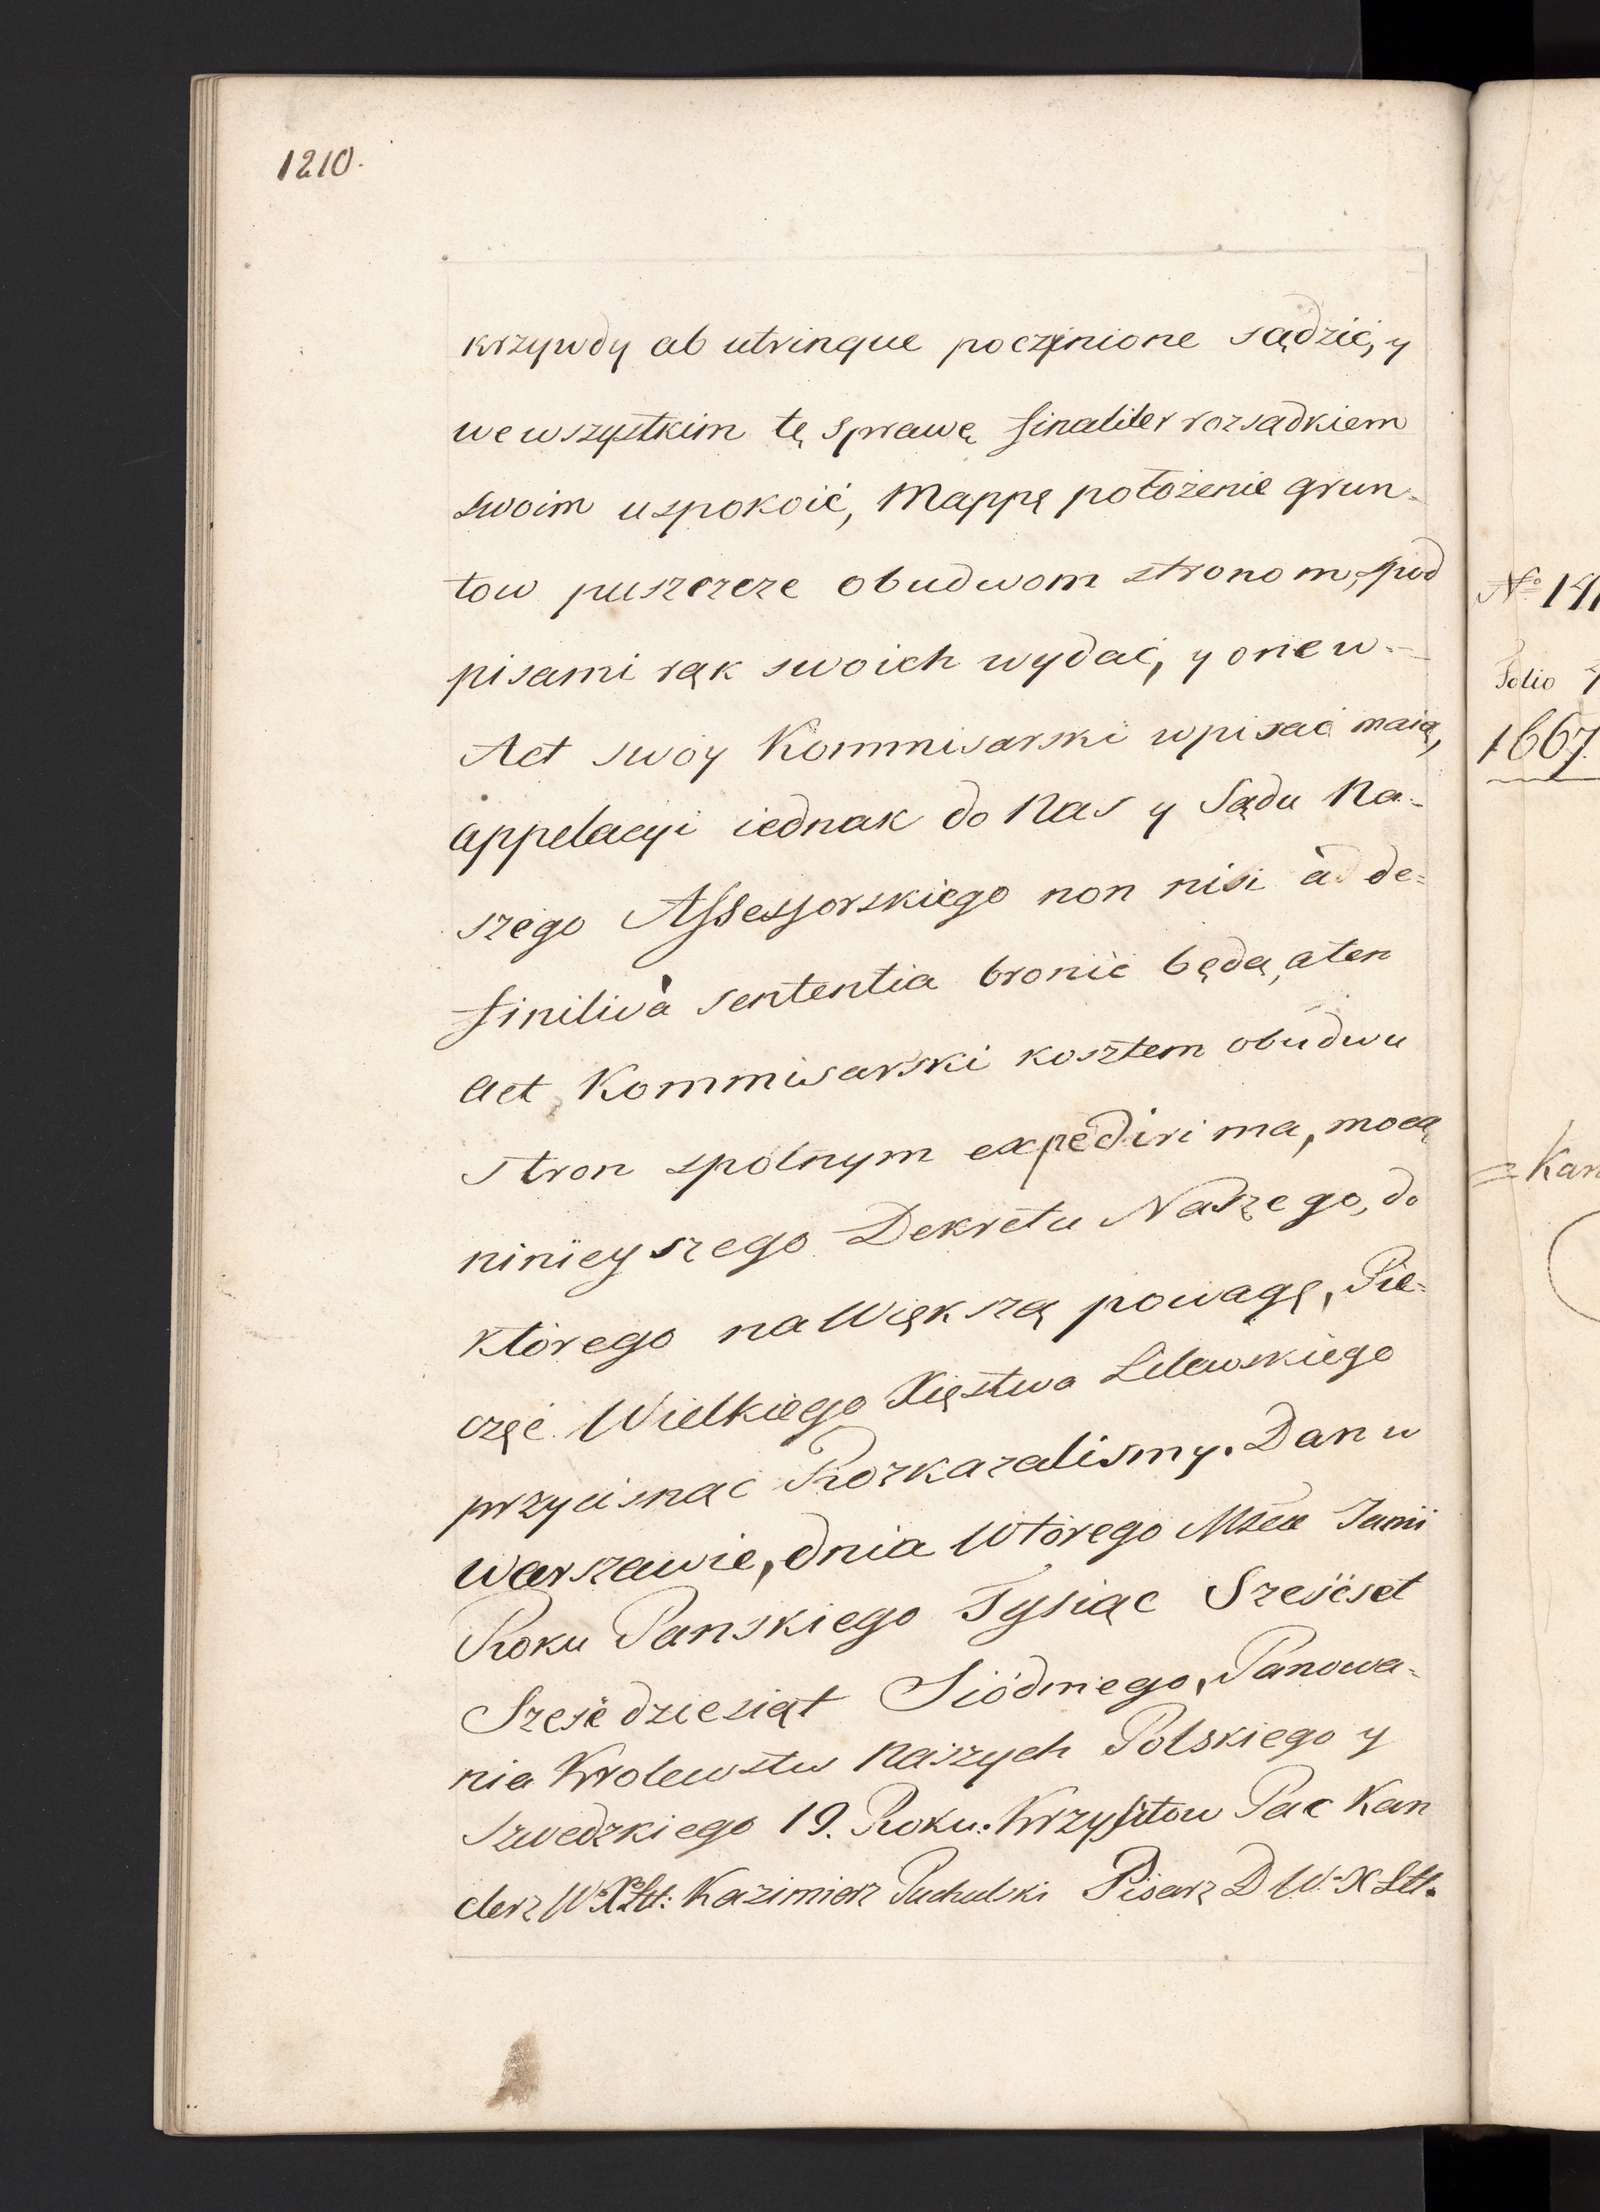 1210.
krzywdy ab utrinque poczynione sądzić, y
we wszystkim tę sprawę finaliter rozsądkiem
swoim uspokoić, Mappę położenie grun-
tow puszcze obudwom stronom, pod
pisami rąk swoich wydać, y one w-
Act swoy Kommisarski wpisać maią,
appelacyi iednak do Nas y Sądu Na-
szego Assessorskiego non nisi à de=
finitivà sententia bronić będą, a ten
Act Kommisarski kosztem obudwu
stron spolnym expediri ma, mocą
ninieyszego Dekretu Naszego, do
ktorego na Większą powagę, Pie=
częć Wielkiego Xięstwa Litewskiego
przycisnąć Rozkazalismy. Dan w
Warszawie, dnia Wtorego Msca Junii
Roku Panskiego Tysiąc Sześćset
Sześćdziesiąt Siódmego, Panowa=
nia Krolewstw Naszych Polskiego y
Szwedzkiego 19. Roku. Krzysztow Pac Kan
clerz W. X. Litt: Kazimierz Puchalski Pisarz D W. X Litt.
No 191
Folio
1667.
= Kan